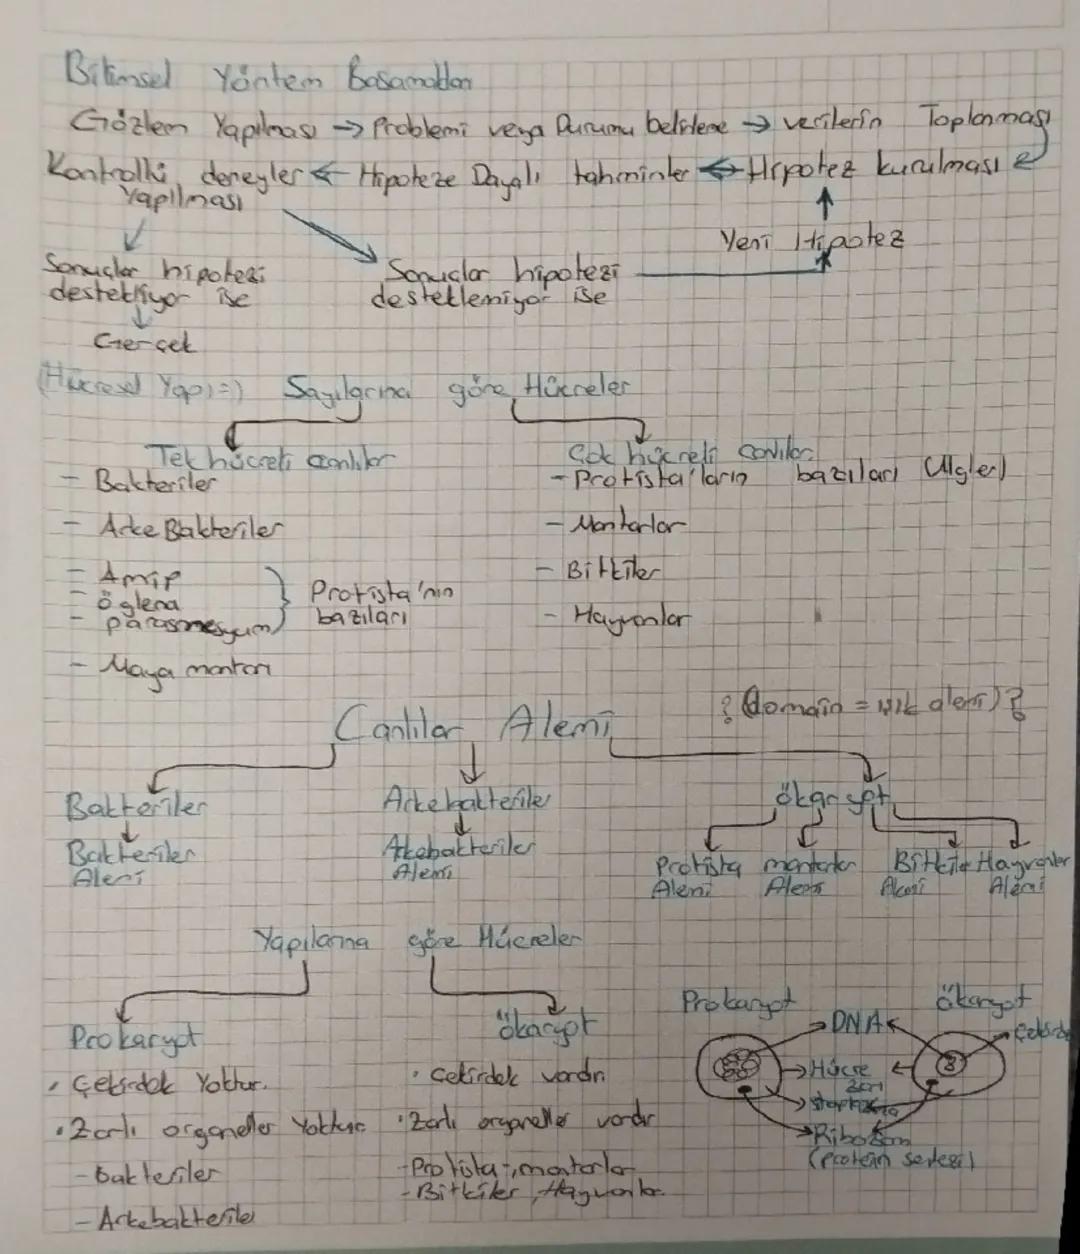 Bilimsel Yöntem Basamakları
Gözlem Yapılması → Problemi veya Durumu belirleme → verilerin Toplanması
Kontrollü deneyler ← Hipoteze Dayalı tahminler ← Hipotez kurulması
Yapılması
Yeni Hipotez
Sonuçlar hipotezi
destekliyor ise
Sonuçlar hipotezi
desteklemiyor ise
Gerçek
(Hücresel Yapı=) Sayılarına göre Hücreler
Tek hücreli canlılar
- Bakteriler
- Arke Bakteriler
- Amip
- öglena
- paramesyum
Protista'nın
bazıları
- Maya mantarı
Çok hücreli canlılar
- Protista'ların bazıları (Algler)
- Mantarlar
- Bitkiler
- Hayvanlar
? (domain = alem) ?
Canlılar Alemi
Bakteriler
Arkebakteriler
ökaryot
Bakteriler
Alemi
Arkebakteriler
Alemi
Protista
Alemi
mantarlar
Alemi
Bitkiler
Alemi
Hayvanlar
Alemi
Yapılarına göre Hücreler
Prokaryot
• Çekirdek Yoktur.
• Zarlı organeller Yoktur
- Bakteriler
- Arkebakteriler
ökaryot
• Çekirdek vardır
• Zarlı organeller vardır
- Protista, mantarlar
- Bitkiler, Hayvanlar
Prokaryot
ökaryot
DNA
Hücre
zarı
Ribozom
(protein sentezi)